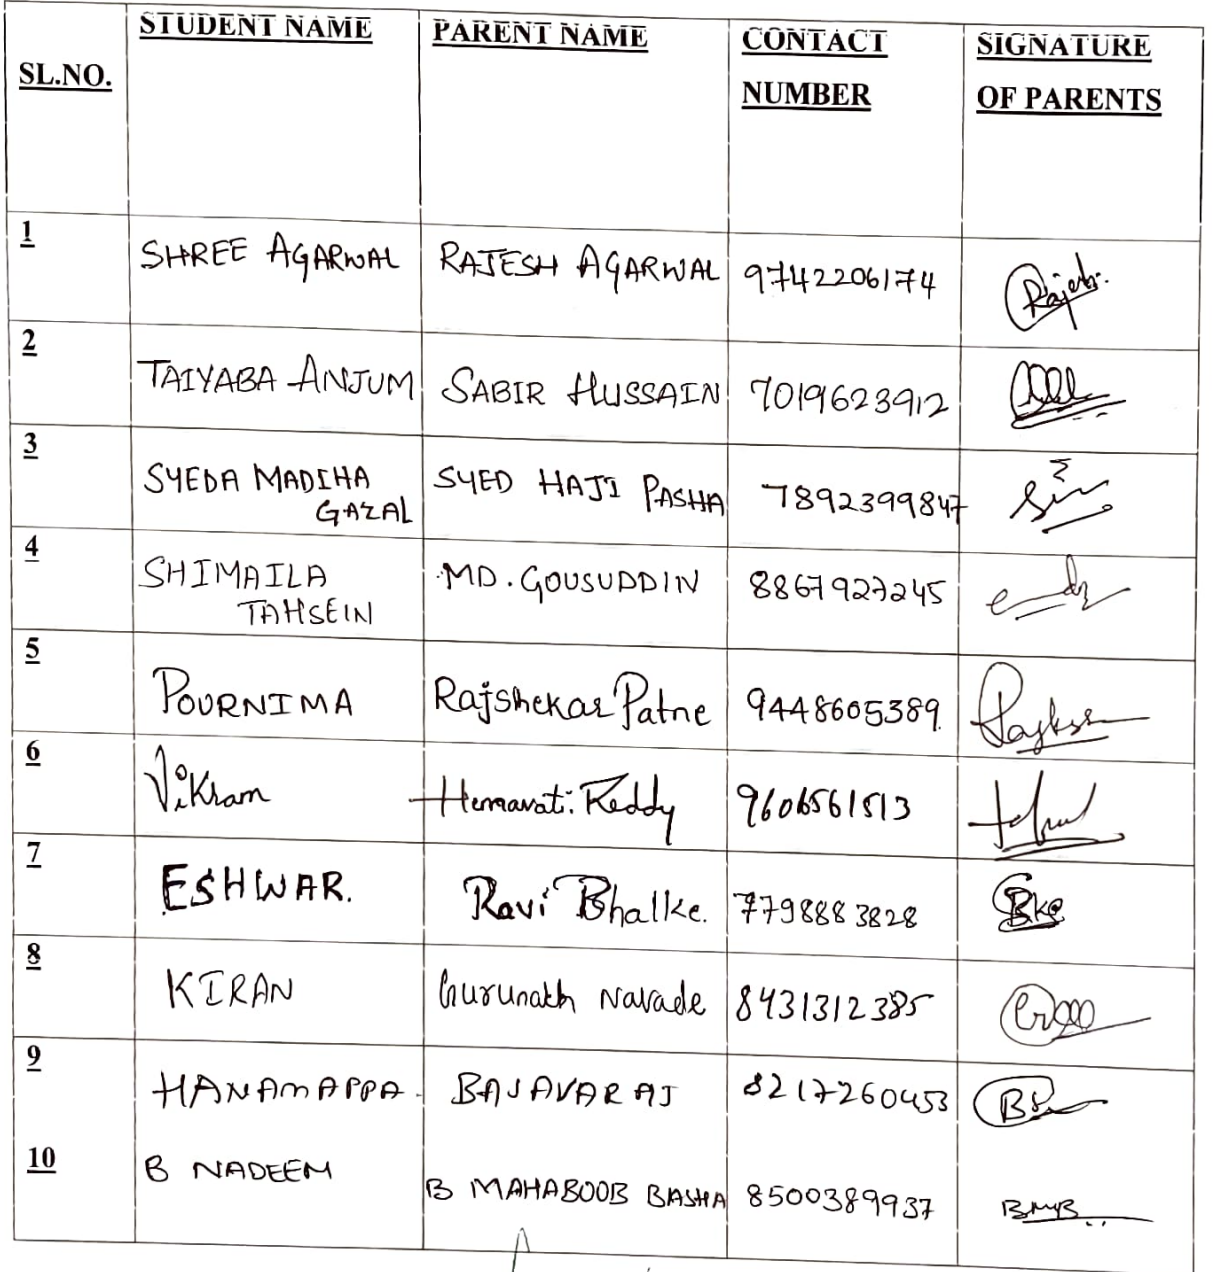 SL.NO. STUDENT NAME PARENT NAME CONTACT NUMBER SIGNATURE OF PARENTS
1 SHREE AGARWAL RAJESH AGARWAL 9742206174 Rajesh
2 TAIYABA ANJUM SABIR HUSSAIN 7019623912
3 SYEDA MADIHA GAZAL SYED HAJI PASHA 7892399847
4 SHIMAILA TAHSEIN MD. GOUSUDDIN 8867927245
5 POURNIMA Rajshekar Patne 9448605389
6 Vikram Hemavati Reddy 9606561513
7 ESHWAR. Ravi Bhalke. 7798883828 Bke
8 KIRAN Gurunath Navade 8431312385
9 HANAMAPPA BASAVARAJ 8217260453
10 B NADEEM B MAHABOOB BASHA 8500389937 BMB